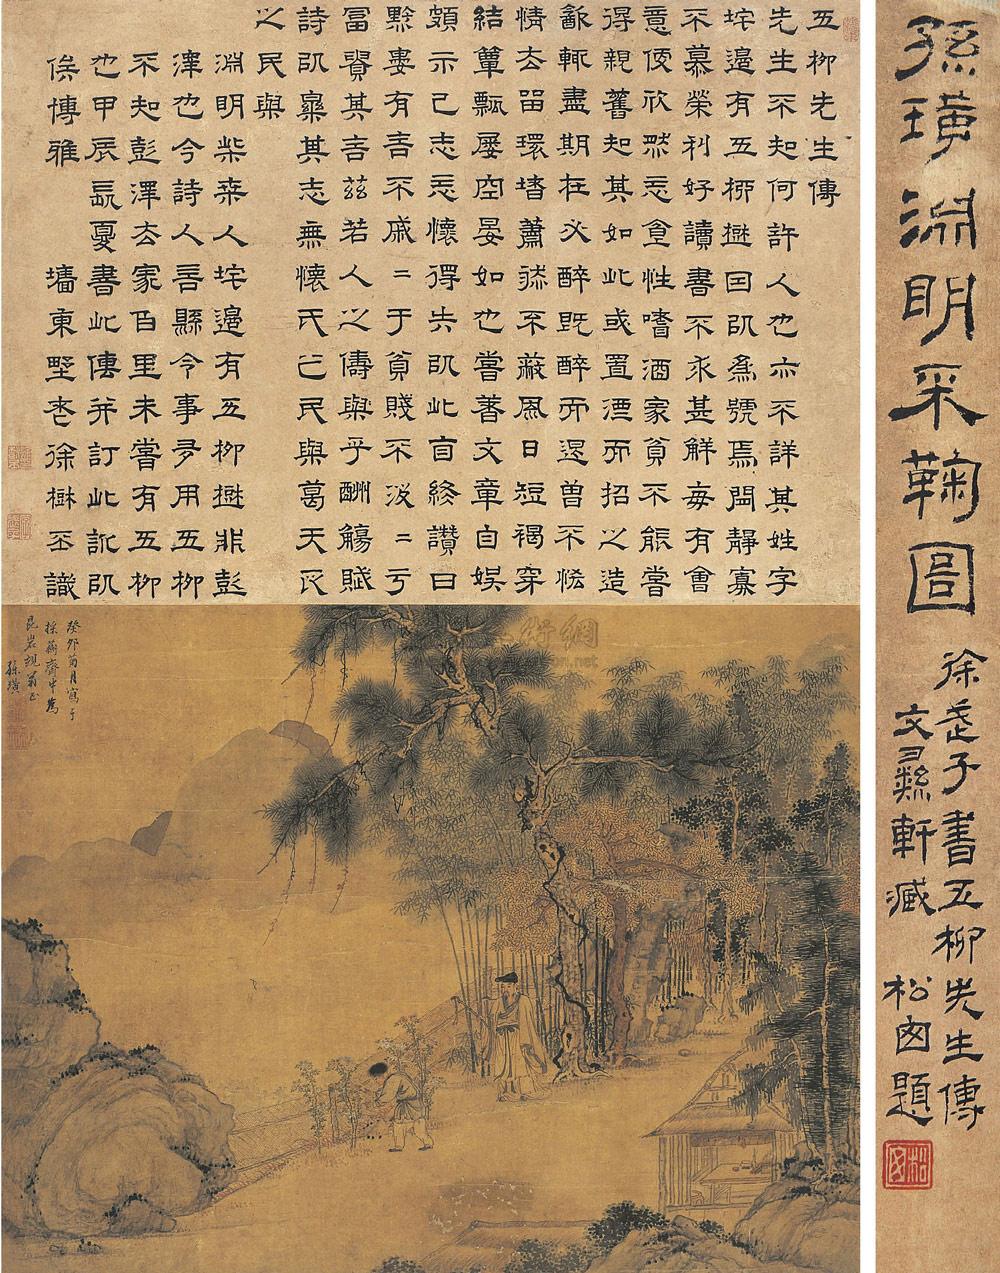 孫璜淵明采鞠圖
徐武子書五柳先生傳
文彝軒藏 松囱題
五柳先生傳
先生不知何許人也亦不詳其姓字
垞邊有五桺樹囙㠯為號焉閒靜寡
不慕榮利好讀書不求甚解每有會
意便欣然忘食性嗜酒家貧不能嘗
得親舊知其如此或置酒而招之造
飲輒盡期在必醉既醉而退曾不恡
情去留環堵蕭然不蔽風日短褐穿
結簞瓢屢空晏如也嘗著文章自娛
頗示己志忘懷得失㠯此自終讚曰
黔婁有言不戚〻于貧賤不汲〻于
富貴其言茲若人之儔與乎酬觴賦
詩㠯樂其志無懷氏之民與葛天氏
之民與
淵明柴桑人垞邊有五柳樹非彭
澤也今詩人言縣令事多用五柳
不知彭澤去家百里未嘗有五柳
也甲辰長夏書此傳并訂此訛㠯
俟博雅 墻東野老徐樹丕識
癸卯菊月寫于
採菊齋中為
昆岩親翁正
孫璜